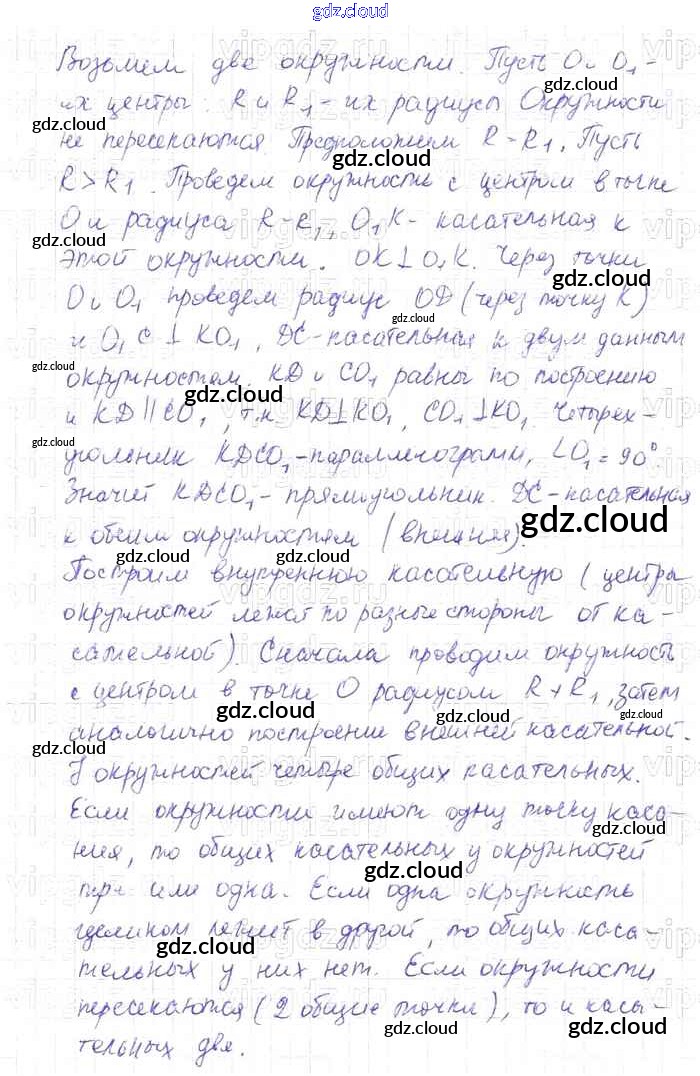 gdz.cloud
Возьмем две окружности. Пусть O и O₁ -
их центры. R и R₁ - их радиусы Окружности
не пересекаются Предположим R - R₁. Пусть
R > R₁. Проведем окружность с центром в точке
O и радиуса R - R₁, O₁K - касательная к
этой окружности. OK ⊥ O₁K. Через точки
O и O₁ проведем радиус OD (через точку K)
и O₁C ⊥ KO₁, DC - касательная к двум данным
окружностям. KD и CO₁ равны по построению
и KD || CO₁, т.к. KD ⊥ KO₁, CO₁ ⊥ KO₁ Четырех-
угольник KDCO₁ - параллелограмм, ∠O₁ = 90°
Значит KDCO₁ - прямоугольник. DC - касательная
к обеим окружностям (внешняя).
Построим внутреннюю касательную (центры
окружностей лежат по разные стороны от ка-
сательной). Сначала проводим окружность
с центром в точке O радиусом R + R₁, затем
аналогично построение внешней касательной.
У окружностей четыре общих касательных.
Если окружности имеют одну точку каса-
ния, то общих касательных у окружностей
три или одна. Если одна окружность
целиком лежит в другой, то общих каса-
тельных у них нет. Если окружности
пересекаются (2 общие точки), то и каса-
тельных две.